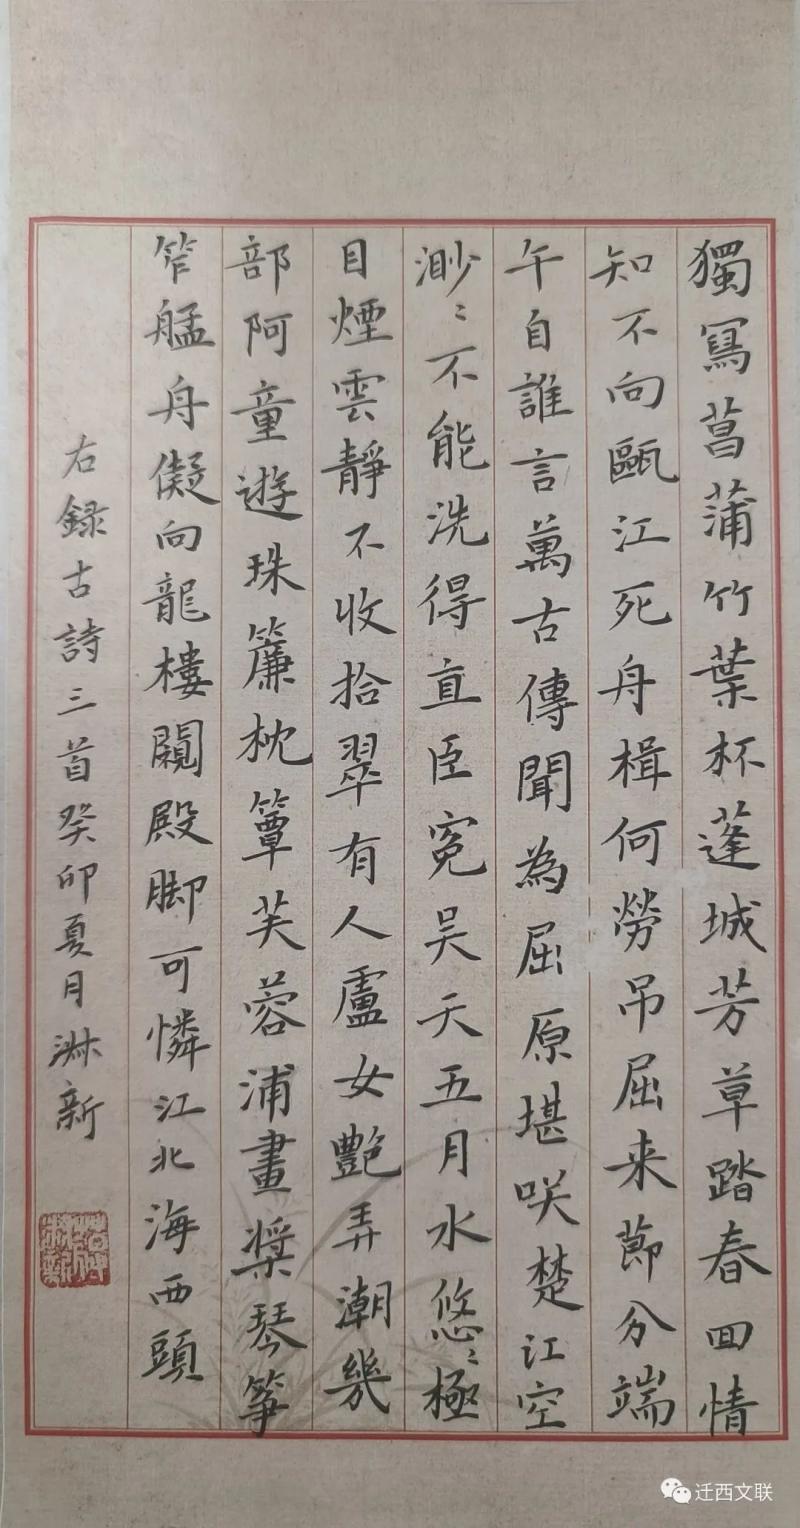 獨寫菖蒲竹葉杯蓬城芳草踏春回情
知不向甌江死舟楫何勞吊屈來節分端
午自誰言萬古傳聞為屈原堪咲楚江空
渺〻不能洗得直臣冤吴天五月水悠〻極
目煙雲靜不收拾翠有人盧女艷弄潮幾
部阿童遊珠簾枕簟芙蓉浦畫槳琴箏
笮艋舟儗向龍樓闚殿脚可憐江北海西頭
右録古詩三首癸卯夏月淋新
迁西文联